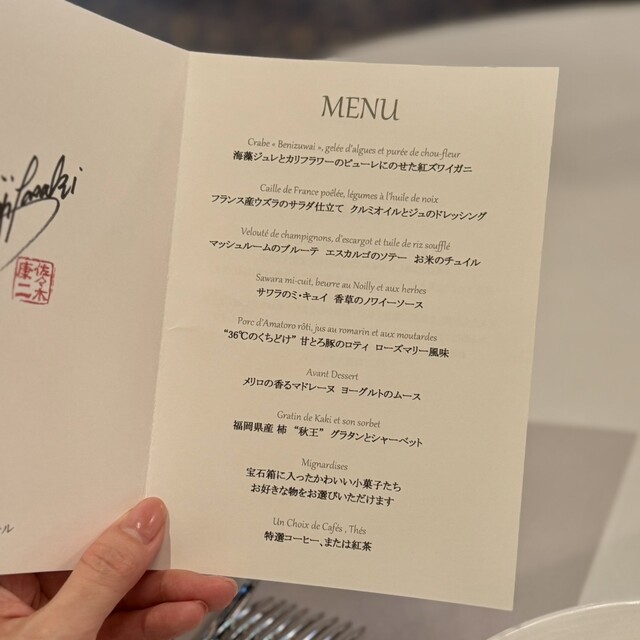 MENU
Crabe « Benizuwai », gelée d'algues et purée de chou-fleur
海藻ジュレとカリフラワーのピューレにのせた紅ズワイガニ
Caille de France poêlée, légumes à l'huile de noix
フランス産ウズラのサラダ仕立て クルミオイルとジュのドレッシング
Velouté de champignons, d'escargot et tuile de riz soufflé
マッシュルームのブルーテ エスカルゴのソテー お米のチュイル
Sawara mi-cuit, beurre au Noilly et aux herbes
サワラのミ・キュイ 香草のノワイーソース
Porc d'Amatoro rôti, jus au romarin et aux moutardes
“36℃のくちどけ” 甘とろ豚のロティ ローズマリー風味
Avant Dessert
メリロの香るマドレーヌ ヨーグルトのムース
Gratin de Kaki et son sorbet
福岡県産 柿 “秋王” グラタンとシャーベット
Mignardises
宝石箱に入ったかわいい小菓子たち
お好きな物をお選びいただけます
Un Choix de Cafés , Thés
特選コーヒー、または紅茶
佐々木
康二
ル